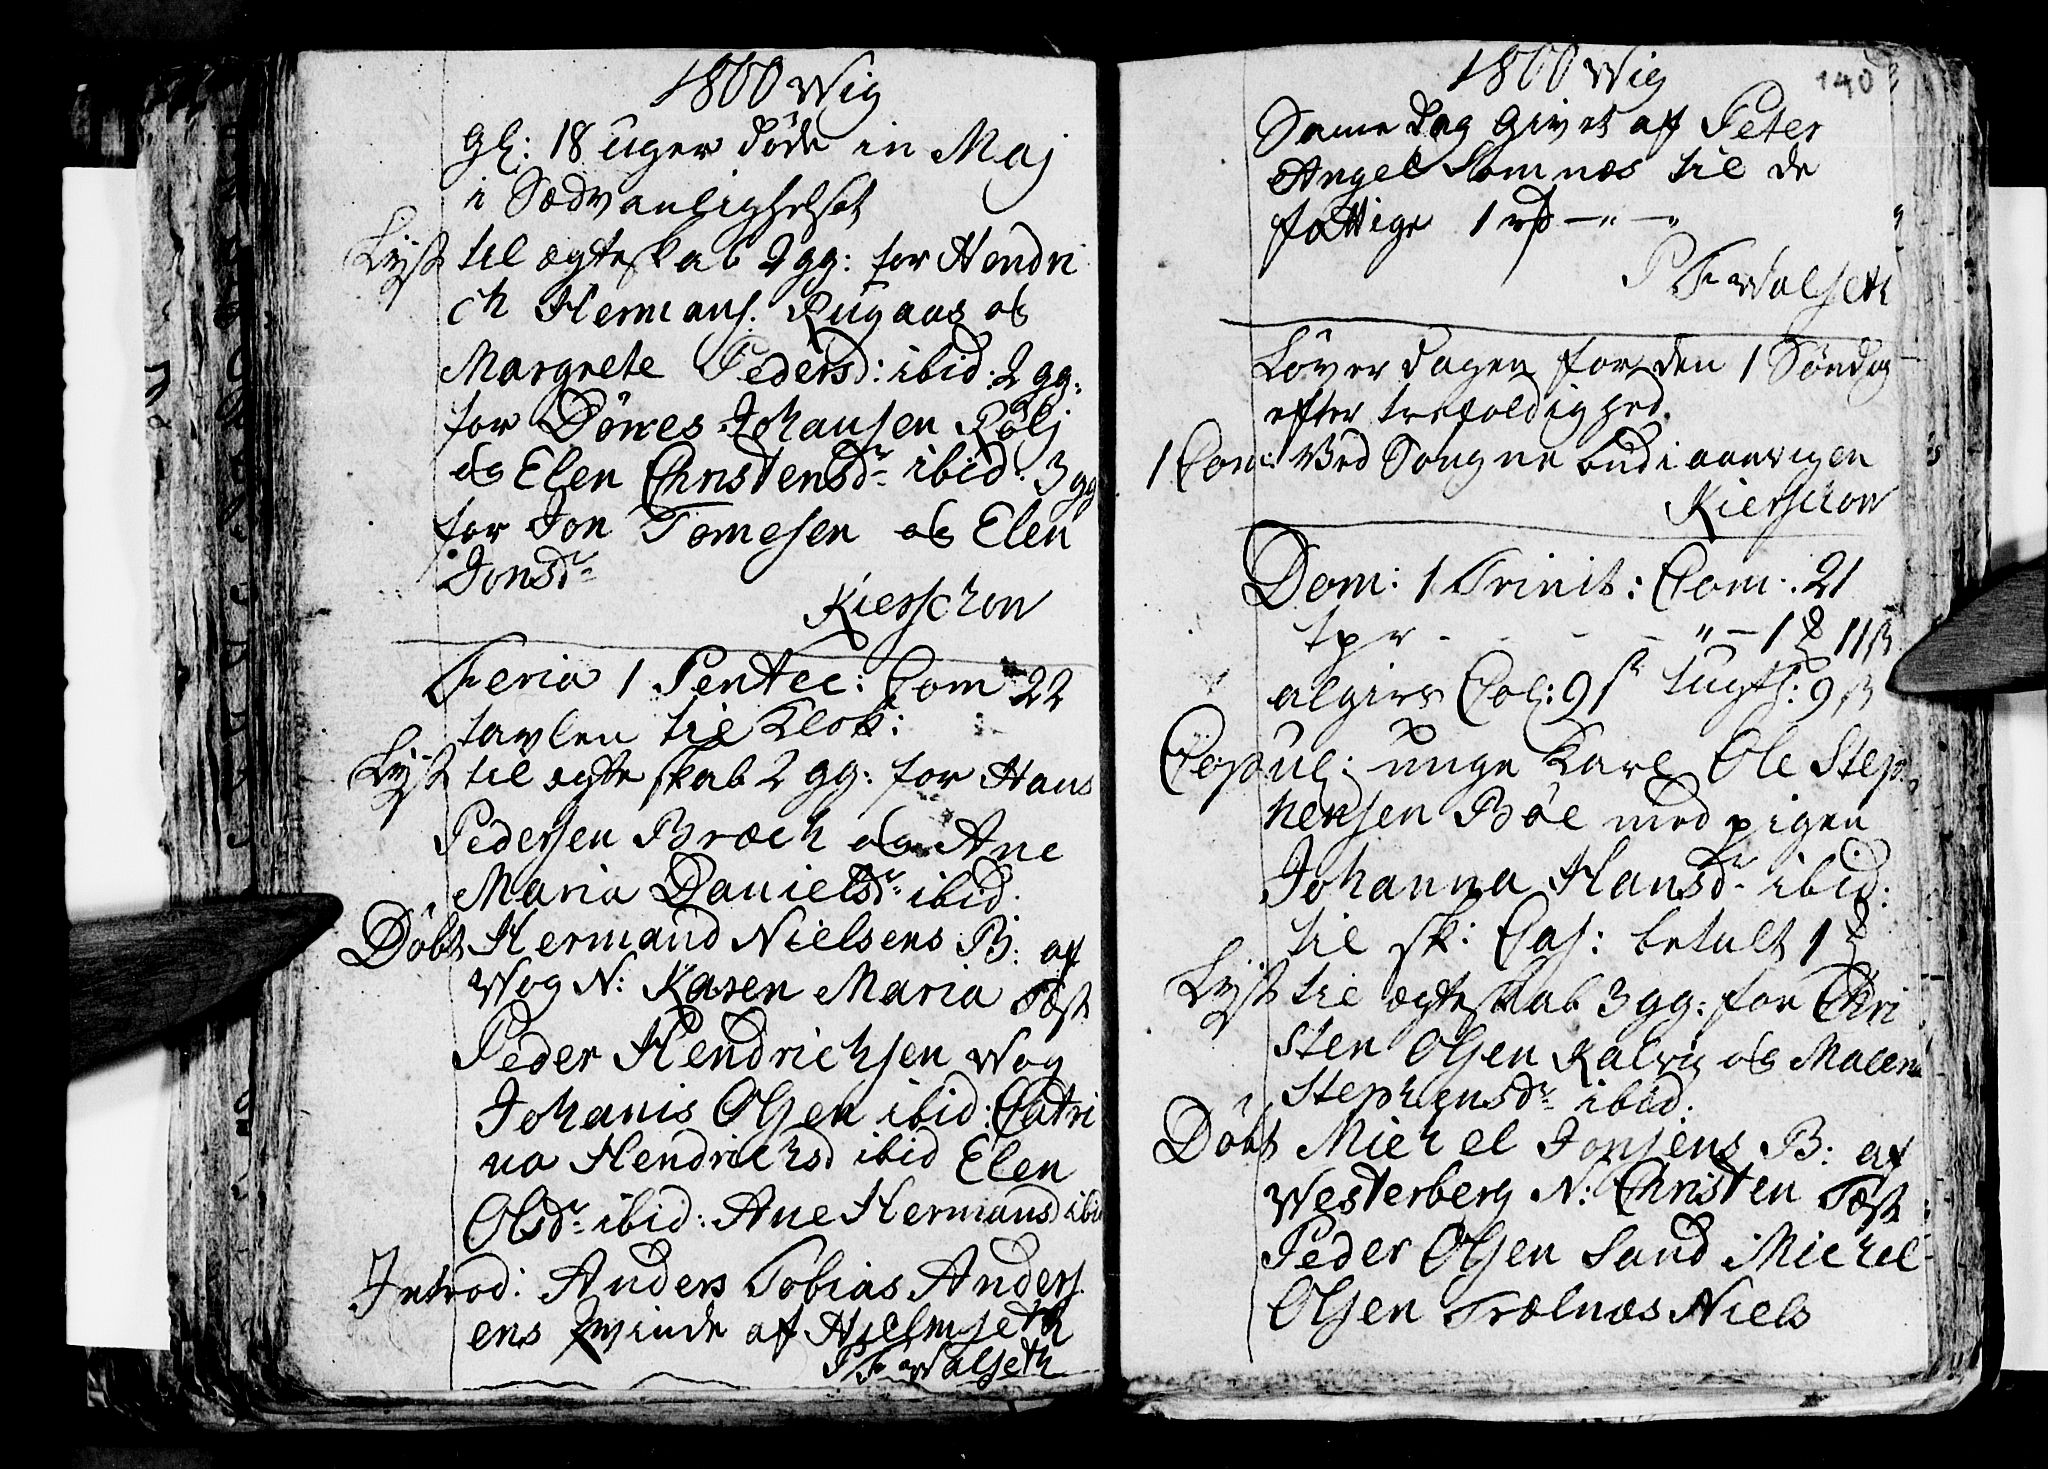 1800 Wig
gl: 18 uger døde in Maj
i Sædvanlighelset
Lyst til ægteskab 2 gg: for Hendri
ch Hermans. Rugaas og
Margrete Pedersd: ibid. 2 gg.
for Dönes Johansen Röli
og Elen Christensdr ibid: 3 gg
for Jon Tomesen og Elen
Jonsdr
Kierschow
Feria 1 Pentec: Com 22
tavlen til Klok:
Lyst til ægteskab 2 gg: for Hans
Pedersen Bræch og Ane
Maria Danielsdr ibid.
Döbt Hermand Nielsens B: af
Wog N: Karen Maria Tæst
Peder Hendrichsen Wog
Johanis Olsen ibid: Catri
na Hendrichsd ibid Elen
Olsdr ibid: Ane Hermansd ibid
Introd: Anders Tobias Anders
ens Qvinde af Hielmseth
P F Walseth
1800 Wig
140
Same Dag Givet af Peter
Angel Somnæs til de
fattige 1 rd — " — "
P F Walseth
Löverdagen for den 1 Söndag
efter trefoldighed.
1 Com: Ved Songne bud i aarvigen
Kierschow
Dom: 1 Trinit: Com: 21
" — 1 11 ß
Col: 9 ß tugth: 9 ß
Copul: unge Karl Ole Step
hensen Böe med pigen
Johanna Hansdr ibid:
til sk: Cas: betalt 1
Lyst til ægteskab 3 gg: for Chri
sten Olsen Kalvig og Malena
Stephensdr ibid.
Döbt Michel Jonsens B: af
Westerberg N: Christen Tæst
Peder Olsen Sand Michel
Olsen Trælnæs Niels